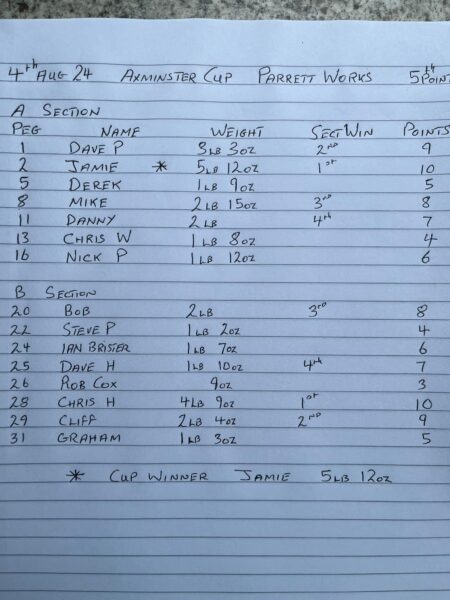 4th Aug 24 Axminster Cup Parrett Works 5th Point
A Section
Peg Name Weight Sect Win Points
1 Dave P 3 lb 3oz 2nd 9
2 Jamie * 5 lb 12oz 1st 10
5 Derek 1 lb 9oz 5
8 Mike 2 lb 15oz 3rd 8
11 Danny 2 lb 4th 7
13 Chris W 1 lb 8oz 4
16 Nick P 1 lb 12oz 6
B Section
20 Bob 2 lb 3rd 8
22 Steve P 1 lb 2oz 4
24 Ian Brister 1 lb 7oz 6
25 Dave H 1 lb 10oz 4th 7
26 Rob Cox 9oz 3
28 Chris H 4 lb 9oz 1st 10
29 Cliff 2 lb 4oz 2nd 9
31 Graham 1 lb 3oz 5
* Cup Winner Jamie 5 lb 12oz